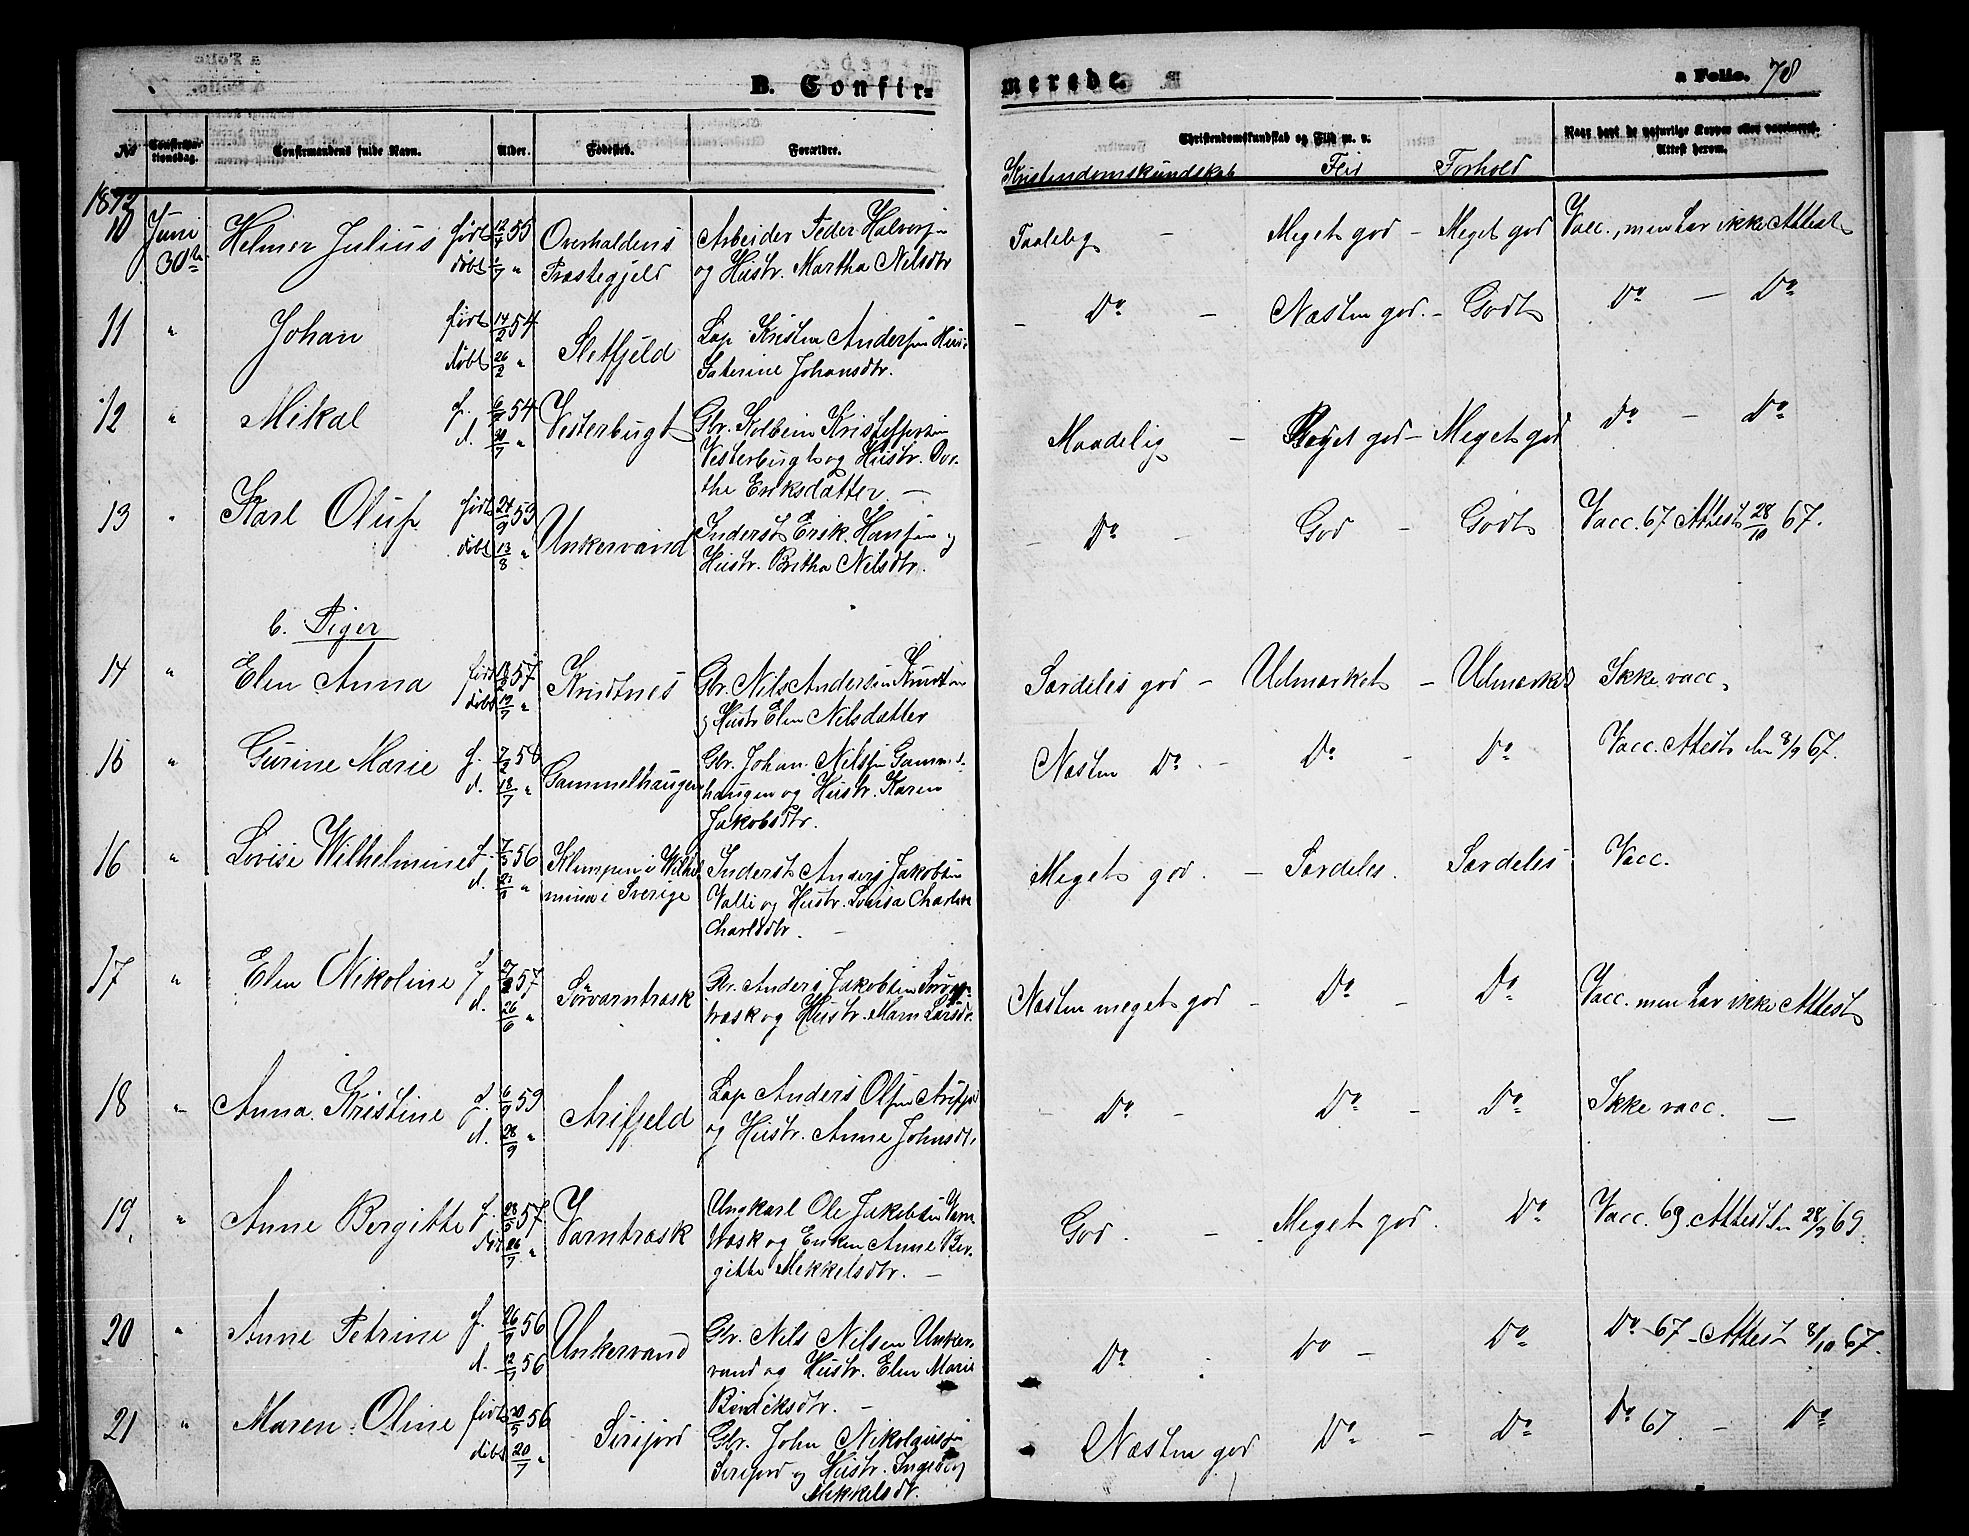 B. Confir=
merede.
a Folio. 78
No
Confirma=
tionsdag.
Confirmandens fulde Navn.
Alder.
Fødested.
Forældre.
Christendomskundskab og Flid m. v.
Naar havt de naturlige Kopper eller vaccineret.
Attest herom.
Kristendomskundskab Flid Forhold
1872
10 Juni Helmer Julius født 12/4 55 Overhaldens Arbeider Peder Halvorsen Taalelig - Meget god - Meget god Vacc., men har ikke Attest
30te døbt 1/7 " Præstegjeld og Hustr. Martha Nilsdtr
11 " Johan født 14/2 54 Sletfjeld Lap Kristen Andersen Hus. - Do - Næsten god. - Godt Do - Do
døbt 26/2 " Caterine Johansdtr.
12 " Mikal f. 54 Vesterbugt Gbr. Kolbein Kristoffersen Maadelig - god - Meget god Do - Do
d. 30/7 " Vesterbugt og Hustr. Dor-
the Eriksdatter. -
13 " Karl Oluf født 24/9 53 Unkervand Inderst Erik Hansen og - Do - God - Godt Vacc. 67 Attest 28/10 67.
døbt 13/8 " Hustr. Britha Nilsdtr.
b. Piger
14 " Elen Anna født 57 Krudtnes Gbr. Nils Andersen Særdeles god - Udmærket - Udmærket Ikke vacc.
døbt 12/7 " og Hustr Elen Nilsdatter
15 " Gurine Marie f. 7/2 58 Gammelhaugen Gbr. Johan Nilsen Gammel- Næsten Do. - Do - Do Vacc. Attest den 8/9 67.
d. 18/7 " haugen og Hustr. Karen
Jakobsdtr.
16 " Lovise Wilhelmine f. 7/5 56 Klumpen i Wilhel Inderst Anders Jakobsen Meget god. - Særdeles. Særdeles Vacc.
d. " mina i Sverige Valli og Hustr. Lovisa
Charlsdtr. -
17 " Elen Nikoline f. 57 Sörvarntræsk Gbr. Anders Jakobsen Næsten meget god - Do - Do Vacc. men har ikke Attest
d. 26/6 " træsk og Hustr. Larsdtr.
18 " Anna Kristine f. 6/9 59 Arifjeld Lap Anders Olsen Arifjeld - Do - Do - Do Ikke vacc. -
d. 28/9 " og Hustr. Anne Johnsdtr.
19. " Anne Bergitte f. 28/5 57 Varntræsk Ungkarl Ole Jakobsen Varn God. - Meget god. Do Vacc. 69. Attest den 28/9 69.
døbt 26/7 " træsk og Enken Anne Ber-
gitte Mekkelsdtr. -
20 " Anne Petrine f. 26/9 56 Unkervand Gbr. Nils Nilsen Unker- Do . Do - Do Do 67 - Attest 8/10 67.
d. 12/7 56 vand og Hustr. Elen Marie
Bendiksdtr. -
21 " Maren Oline født 30/5 56 Sirijord Gbr. John Nikolaisen Næsten god Do - Do Do 67. - Do
døbt 20/7 " Sirijord og Hustr. Ingeborg
Mekkelsdtr.